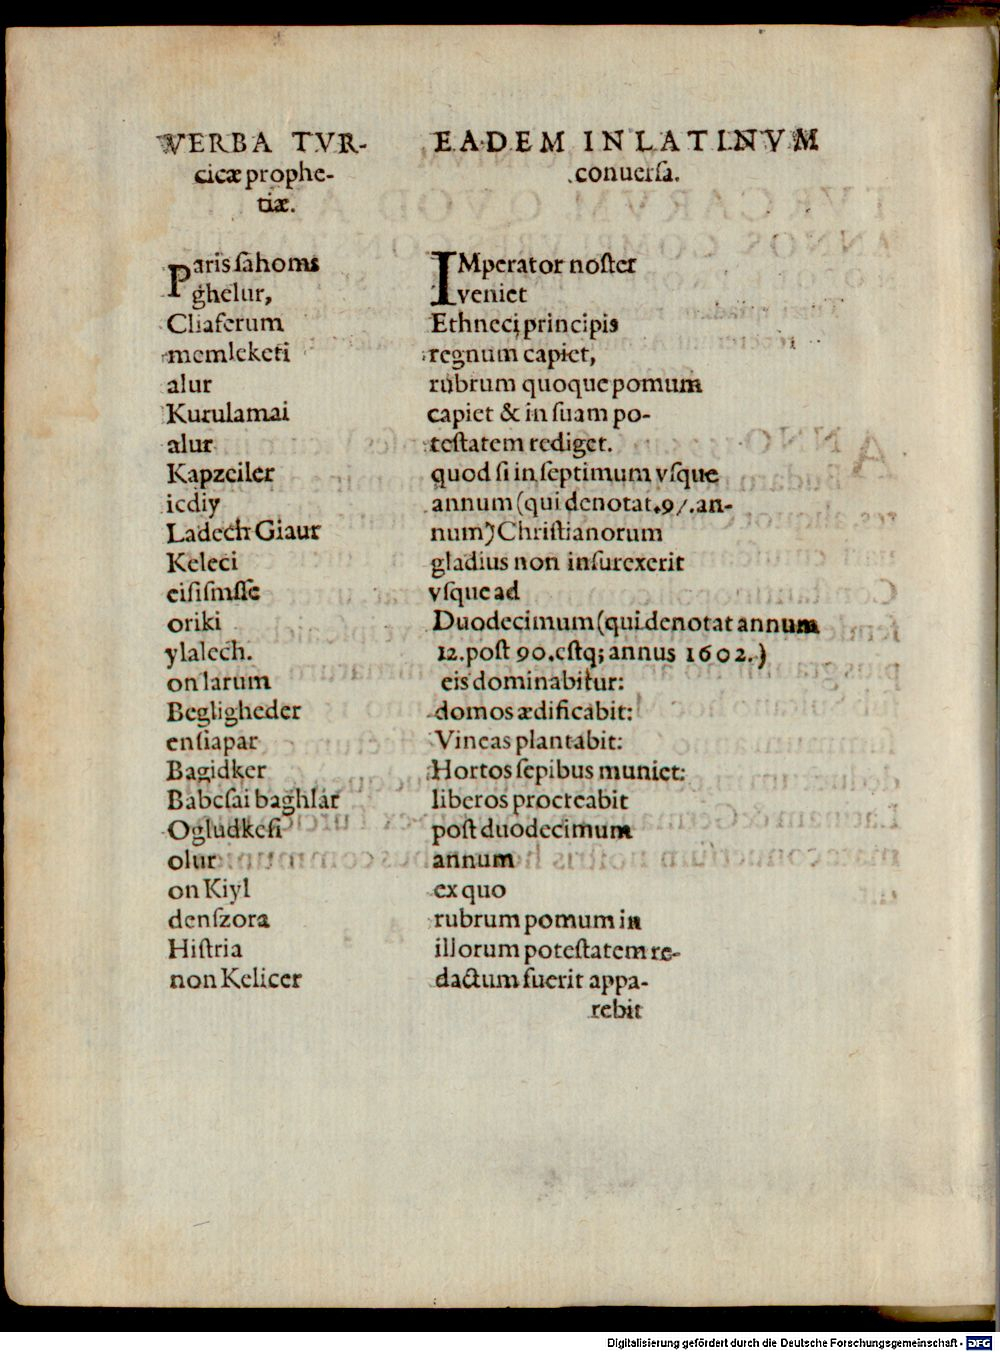 VERBA TVR-
cicæ prophe-
tiæ.
Paris sahoms
ghelur,
Cliaferum
memleketi
alur
Kurulamai
alur
Kapzeiler
iediy
Ladech Giaur
Keleci
eisismsse
oriki
ylalech.
on larum
Begligheder
ensiapar
Bagidker
Babesai baghlar
Ogludkesi
olur
on Kiyl
denszora
Histria
non Kelicer
EADEM IN LATINVM
conuersa.
IMperator noster
veniet
Ethneci principis
regnum capiet,
rubrum quoque pomum
capiet & in suam po-
testatem rediget.
quod si in septimum vsque
annum (qui denotat .97. an-
num) Christianorum
gladius non insurexerit
vsque ad
Duodecimum (qui denotat annum
12. post 90. estq; annus 1602.)
eis dominabitur:
domos ædificabit:
Vineas plantabit:
Hortos sepibus muniet:
liberos procreabit
post duodecimum
annum
ex quo
rubrum pomum in
illorum potestatem re-
dactum fuerit appa-
rebit
Digitalisierung gefördert durch die Deutsche Forschungsgemeinschaft - DFG